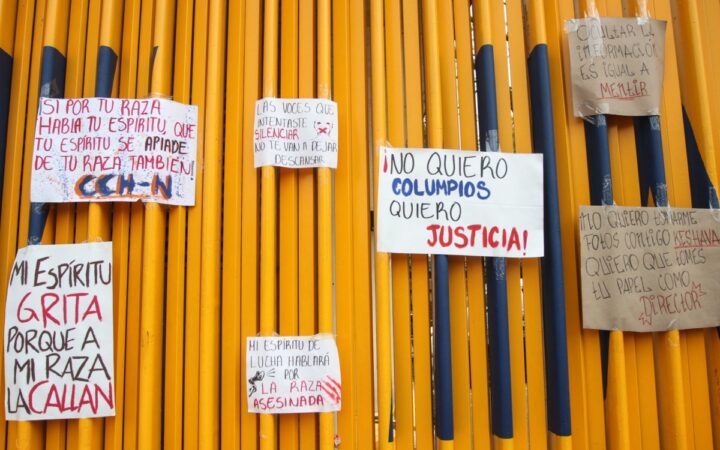 ¡SI POR TU RAZA
HABLA TU ESPÍRITU, QUE
TU ESPÍRITU SE APIADE
DE TU RAZA TAMBIÉN!
CCH-N
LAS VOCES QUE
INTENTASTE
SILENCIAR
NO TE VAN A DEJAR
DESCANSAR
¡NO QUIERO
COLUMPIOS
QUIERO
JUSTICIA!
OCULTAR LA
INFORMACIÓN
ES IGUAL A
MENTIR
¡NO QUIERO TOMARME
FOTOS CONTIGO KESHAVA
QUIERO QUE TOMES
TU PAPEL COMO
DIRECTOR
MI ESPÍRITU
GRITA
PORQUE A
MI RAZA
LA CALLAN
MI ESPÍRITU DE
LUCHA HABLARÁ
POR
LA RAZA
ASESINADA